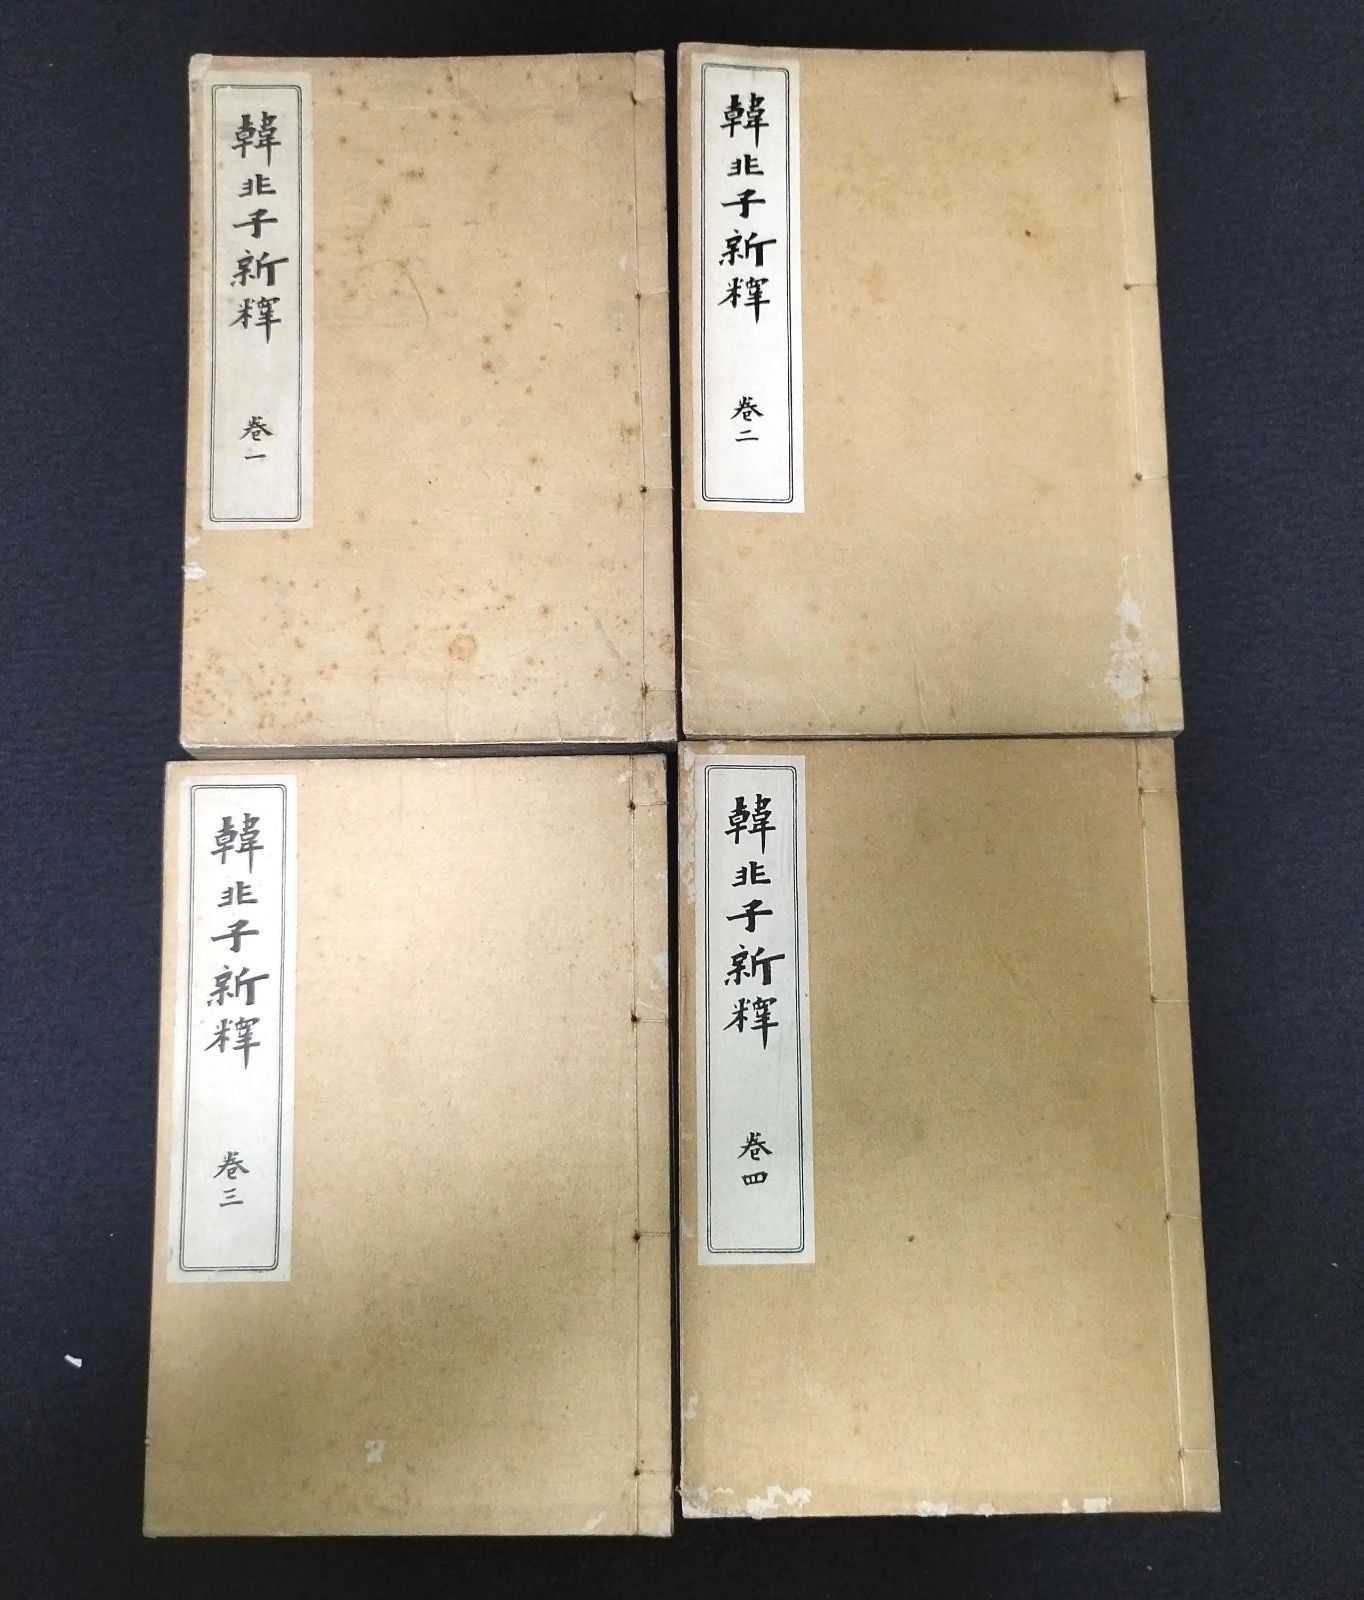 韓非子新釋
卷一
韓非子新釋
卷二
韓非子新釋
卷三
韓非子新釋
卷四